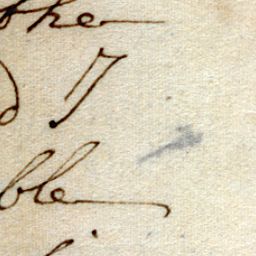 the
d 17
ble